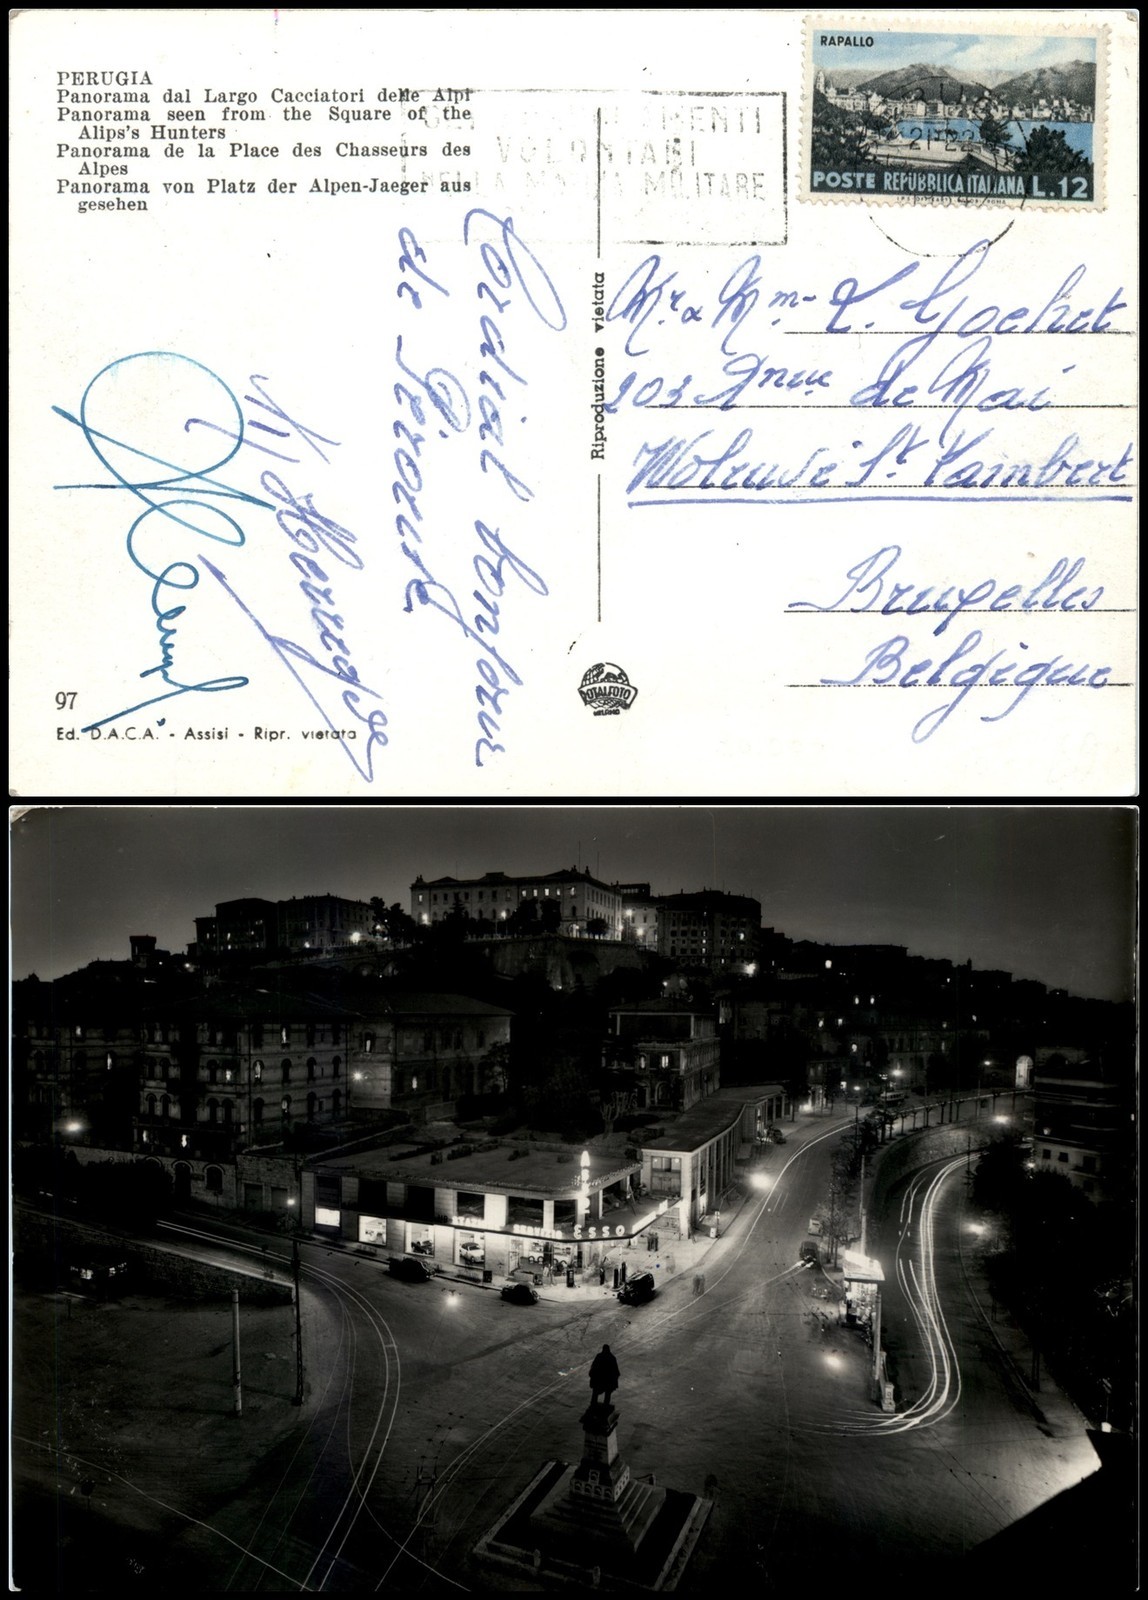 PERUGIA
Panorama dal Largo Cacciatori delle Alpi
Panorama seen from the Square of the
Alips's Hunters
Panorama de la Place des Chasseurs des
Alpes
Panorama von Platz der Alpen-Jaeger aus
gesehen
VOLONTARI
MILITARE
RAPALLO
POSTE REPUBBLICA ITALIANA L.12
Cordial bonjour
de Pérouse
Riproduzione vietata
Mr & Mme L. Gochet
203 Anue de Mai
Woluwé St Lambert
Bruxelles
Belgique
97
Ed. D.A.C.A. - Assisi - Ripr. vietata
TOTALFOTO
MILANO
ESSO